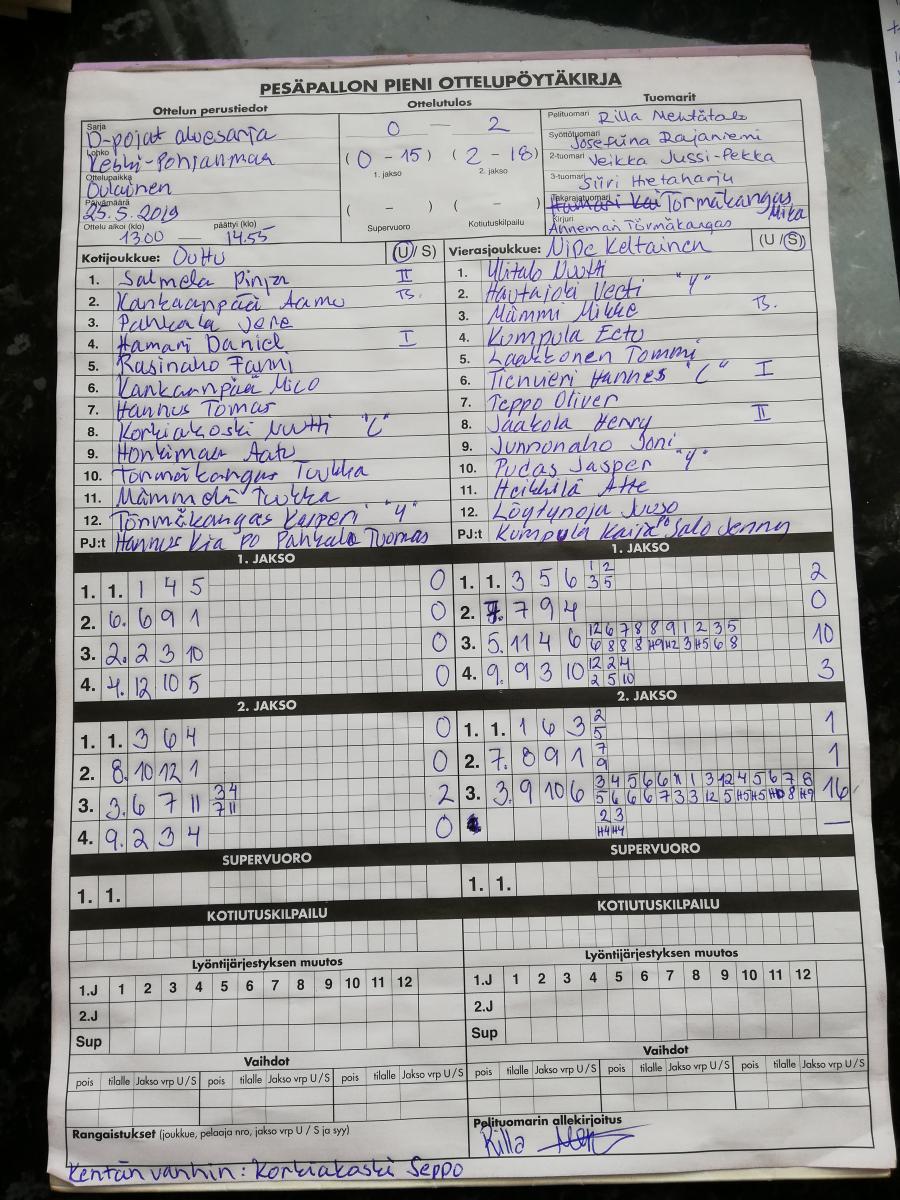 PESÄPALLON PIENI OTTELUPÖYTÄKIRJA
Ottelun perustiedot Ottelutulos Tuomarit
Sarja D-pojat aluesarja
Lohko Keski-Pohjanmaa
Ottelupaikka Oulainen
Päivämäärä 25.5.2019
Ottelu alkoi (klo) päättyi (klo)
13.00 — 14.55
0 — 2
(0 - 15) (2 - 18)
1. jakso 2. jakso
( - ) ( - )
Supervuoro Kotiutuskilpailu
Pelituomari Rilla Mehtätalo
Syöttötuomari Josefiina Rajaniemi
2-tuomari Veikka Jussi-Pekka
3-tuomari Siiri Hietaharju
Takarajatuomari Törmäkangas Mika
Kirjuri Anneman Törmäkangas
Kotijoukkue: OuHu (U/S)
1. Salmela Pinja II
2. Kankaanpää Aamu TB.
3. Pahkala Jere
4. Hamari Daniel I
5. Rasinaho Fanni
6. Kankaanpää Mico
7. Hannus Tomas
8. Korkiakoski Nuutti "C"
9. Honkimaa Aatu
10. Törmäkangas Tuukka
11. Mämmelä Tuukka
12. Törmäkangas Kasperi "Y"
PJ:t Hannus Kia PO Pahkala Tuomas
Vierasjoukkue: NiPe Keltainen (U/S)
1. Ylitalo Nuutti
2. Hautajoki Veeti "Y"
3. Mämmi Mikke TB.
4. Kumpula Eetu
5. Laakkonen Tommi
6. Tienvieri Hannes "C" I
7. Teppo Oliver
8. Jaakola Henry II
9. Junnonaho Joni
10. Pudas Jasper "Y"
11. Heikkilä Atte
12. Löytynoja Juuso
PJ:t Kumpula Kaija PO Salo Jenny
1. JAKSO
1. 1. 1 4 5 0
2. 6. 6 9 1 0
3. 2. 2 3 10 0
4. 4. 12 10 5 0
2. JAKSO
1. 1. 3 6 4 0
2. 8. 10 12 1 0
3. 3. 6 7 11 3 4 2
7 11
4. 9. 2 3 4 0
SUPERVUORO
1. 1.
KOTIUTUSKILPAILU
1. JAKSO
1. 1. 3 5 6 1 2 2
3 5
2. 7. 7 9 4 0
3. 5. 11 4 6 12 6 7 8 8 9 1 2 3 5 10
6 8 8 8 H9 H2 3 H5 6 8
4. 9. 9 3 10 12 2 4 3
2 5 10
2. JAKSO
1. 1. 1 6 3 2 1
5
2. 7. 8 9 1 7 1
9
3. 3. 9 10 6 3 4 5 6 6 11 1 3 12 4 5 6 7 8 16
5 6 6 6 7 3 3 12 5 H5 H5 H10 8 H9
2 3 —
H4 H4
SUPERVUORO
1. 1.
KOTIUTUSKILPAILU
Lyöntijärjestyksen muutos
1.J 1 2 3 4 5 6 7 8 9 10 11 12
2.J
Sup
Vaihdot
pois tilalle Jakso vrp U/S pois tilalle Jakso vrp U/S pois tilalle Jakso vrp U/S
Rangaistukset (joukkue, pelaaja nro, jakso vrp U / S ja syy)
Lyöntijärjestyksen muutos
1.J 1 2 3 4 5 6 7 8 9 10 11 12
2.J
Sup
Vaihdot
pois tilalle Jakso vrp U/S pois tilalle Jakso vrp U/S pois tilalle Jakso vrp U/S
Pelituomarin allekirjoitus
Rilla
Kentän vanhin: Korkiakoski Seppo